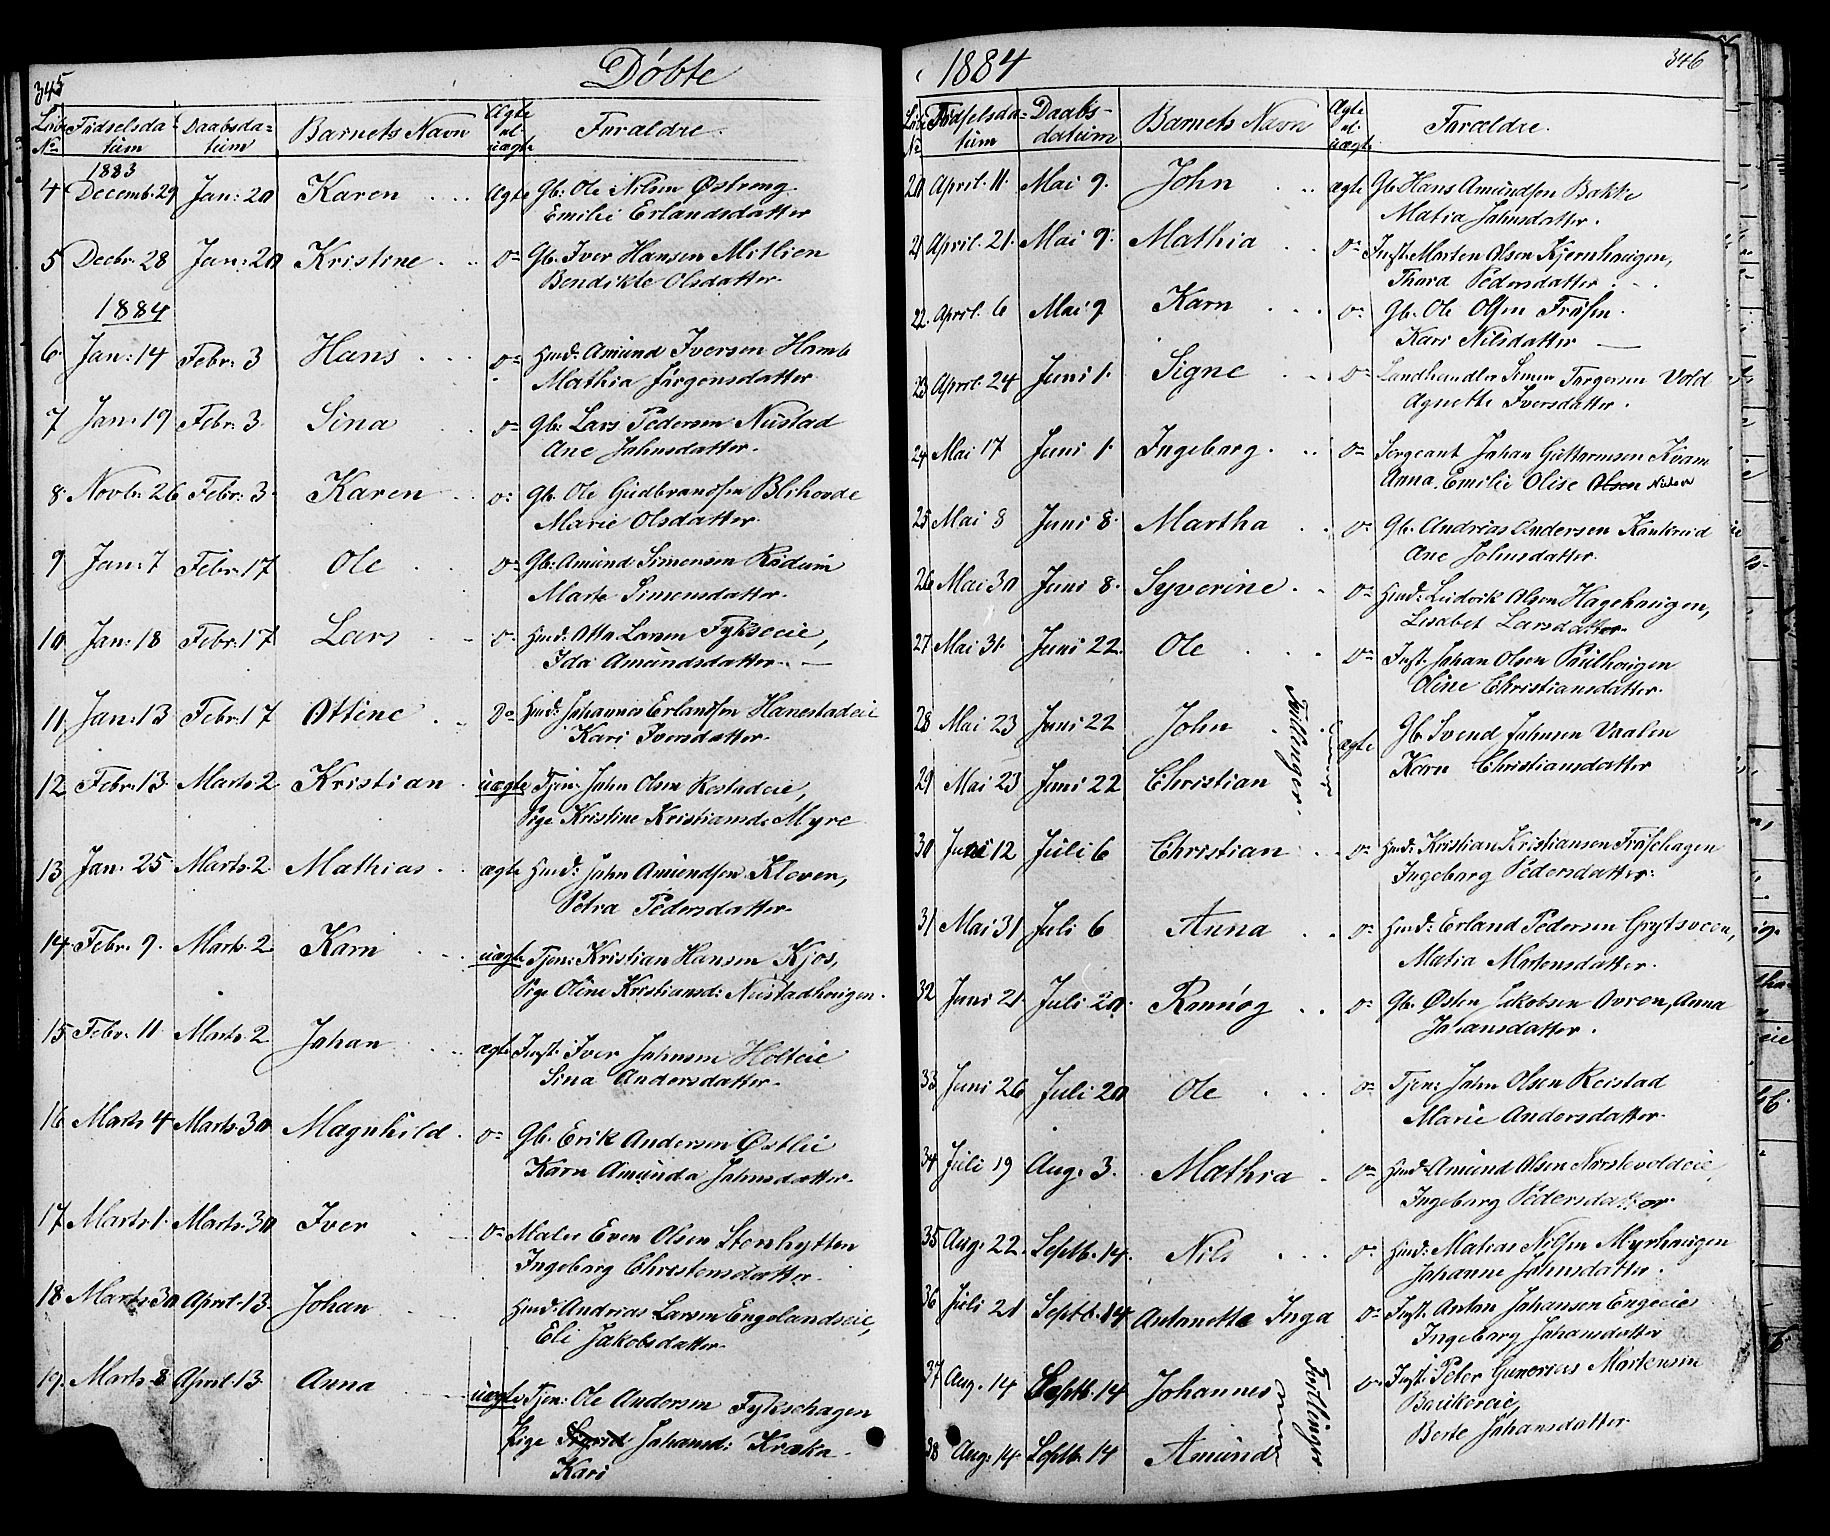 345
Döbte
Löbe No
Fødselsdatum
Daabsdatum
Barnets Navn
Ægte el. uægte
Forældre.
1883
4 Decemb. 29 Jan: 20 Karen Ægte Gb: Ole Nilsen Østreng
Emilie Erlandsdatter
5 Decbr. 28 Jan: 20 Kristine do Gb. Iver Hansen Mitlien
Bendikte Olsdatter.
1884
6. Jan: 14 Febr: 3 Hans do Hmd: Amund Iversen
Mathia Jörgensdatter
7 Jan: 19 Febr: 3. Sina do Gb: Lars Pedersen Nustad
Ane Johnsdatter.
8. Novbr. 26 Febr: 3. Karen do Gb. Ole Gudbrandsen Blihovde
Marie Olsdatter.
9 Jan: 7 Febr. 17 Ole do Gb: Amund Simensen Rödum
Marte Simensdatter.
10 Jan: 18 Febr. 17 Lars do Hmd: Otto Larsen Fykseeie,
Ida Amundsdatter.
11. Jan: 13 Febr. 17 Ottine Do Hmd: Johannes Erlandsen Hanestadeie
Kari Iversdatter.
12. Febr. 13. Marts 2 Kristian uægte Tjen: John Olsen
Pige Kristine Kristiansd: Myre
13. Jan: 25 Marts 2 Mathias ægte Hmd: John Amundsen Kleven,
Petra Pedersdatter.
14. Febr. 9. Marts 2 Karn uægte Tjen: Kristian Hansen Kjos,
Pige Oline Kristiansd: Nustadhaugen.
15 Febr. 11 Marts 2 Johan ægte Inst: Iver Johnsen Holteie
Sina Andersdatter.
16 Marts 4 Marts 30 Magnhild do Gb. Erik Andersen Østlie
Karn Amunda Johnsdatter.
17 Marts 1. Marts 30 Iver do Maler Even Olsen Stenhytten
Ingeborg Christensdatter.
18 Marts 30 April 13. Johan Hmd: Andrias Larsen Engelandseie,
Eli Jakobsdatter.
19. Marts 8 April 13. Anna uægte Tjen: Ole Andersen Fyksehagen
Pige Sigrid Johansd: Kraka
Kari
i 1884
346
Löbe No
Fødselsdatum
Daabsdatum
Barnets Navn
Ægte el. uægte
Forældre.
20 April. 11. Mai 9. John ægte Gb. Hans Amundsen Bakke
Matia Johnsdatter.
21 April. 21. Mai 9. Mathia do Inst. Marten Olsen Kjernhaugen,
Thora Pedersdatter.
22. April. 6 Mai 9 Karn do Gb. Ole Olsen Frøsen.
Kari Nilsdatter
23 April. 24 Juni 1. Signe do Landhandler Simen Torgersen Vold
Agnette Iversdatter.
24 Mai 17 Juni 1. Ingeborg do Sergeant Johan Guttormsen Kvam
Anna Emilie Olise Olsen
25 Mai 8 Juni 8. Martha do Gb. Andrias Andersen Kankrud
Ane Johnsdatter.
26 Mai 30 Juni 8. Syverine do Hmd: Ludvik Olsen Hagehaugen,
Lisabet Larsdatter.
27 Mai 31. Juni 22. Ole do Inst. Johan Olsen Paulhaugen
Oline Christiansdatter.
28 Mai 23 Juni 22 John ægte Gb. Svend Johnsen Vaalen
Karn Christiansdatter
29 Mai 23 Juni 22 Christian
Tvillinger.
30 Juni 12 Juli 6 Christian do Hmd: Kristian Kristiansen Frøsehagen
Ingeborg Pedersdatter.
31 Mai 31 Juli 6 Anna do Hmd: Erland Pedersen Grytsveen,
Matia Mortensdatter.
32 Juni 21 Juli 20. Rønnög do Gb. Østen Jakobsen Ovren, Anna
Johansdatter.
33 Juni 26 Juli 20 Ole do Tjen: John Olsen Reistad
Marie Andersdatter.
34 Juli 19 Aug. 3. Mathea do Hmd: Amund Olsen
Ingeborg Pedersdatter
35 Aug. 22. Septb. 14. Nils do Hmd: Matias Nilsen Myrhaugen
Johanne Johnsdatter.
36 Juli 21 Septb. 14 Antonette Inga do Inst. Anton Johansen Engeeie
Ingeborg Johansdatter
37 Aug. 14 Septb. 14 Johannes do Inst: Peter Gunerius Mortensen
Baukereie,
Berte Johansdatter
38 Aug. 14. Septb. 14 Amund
Tvillinger.